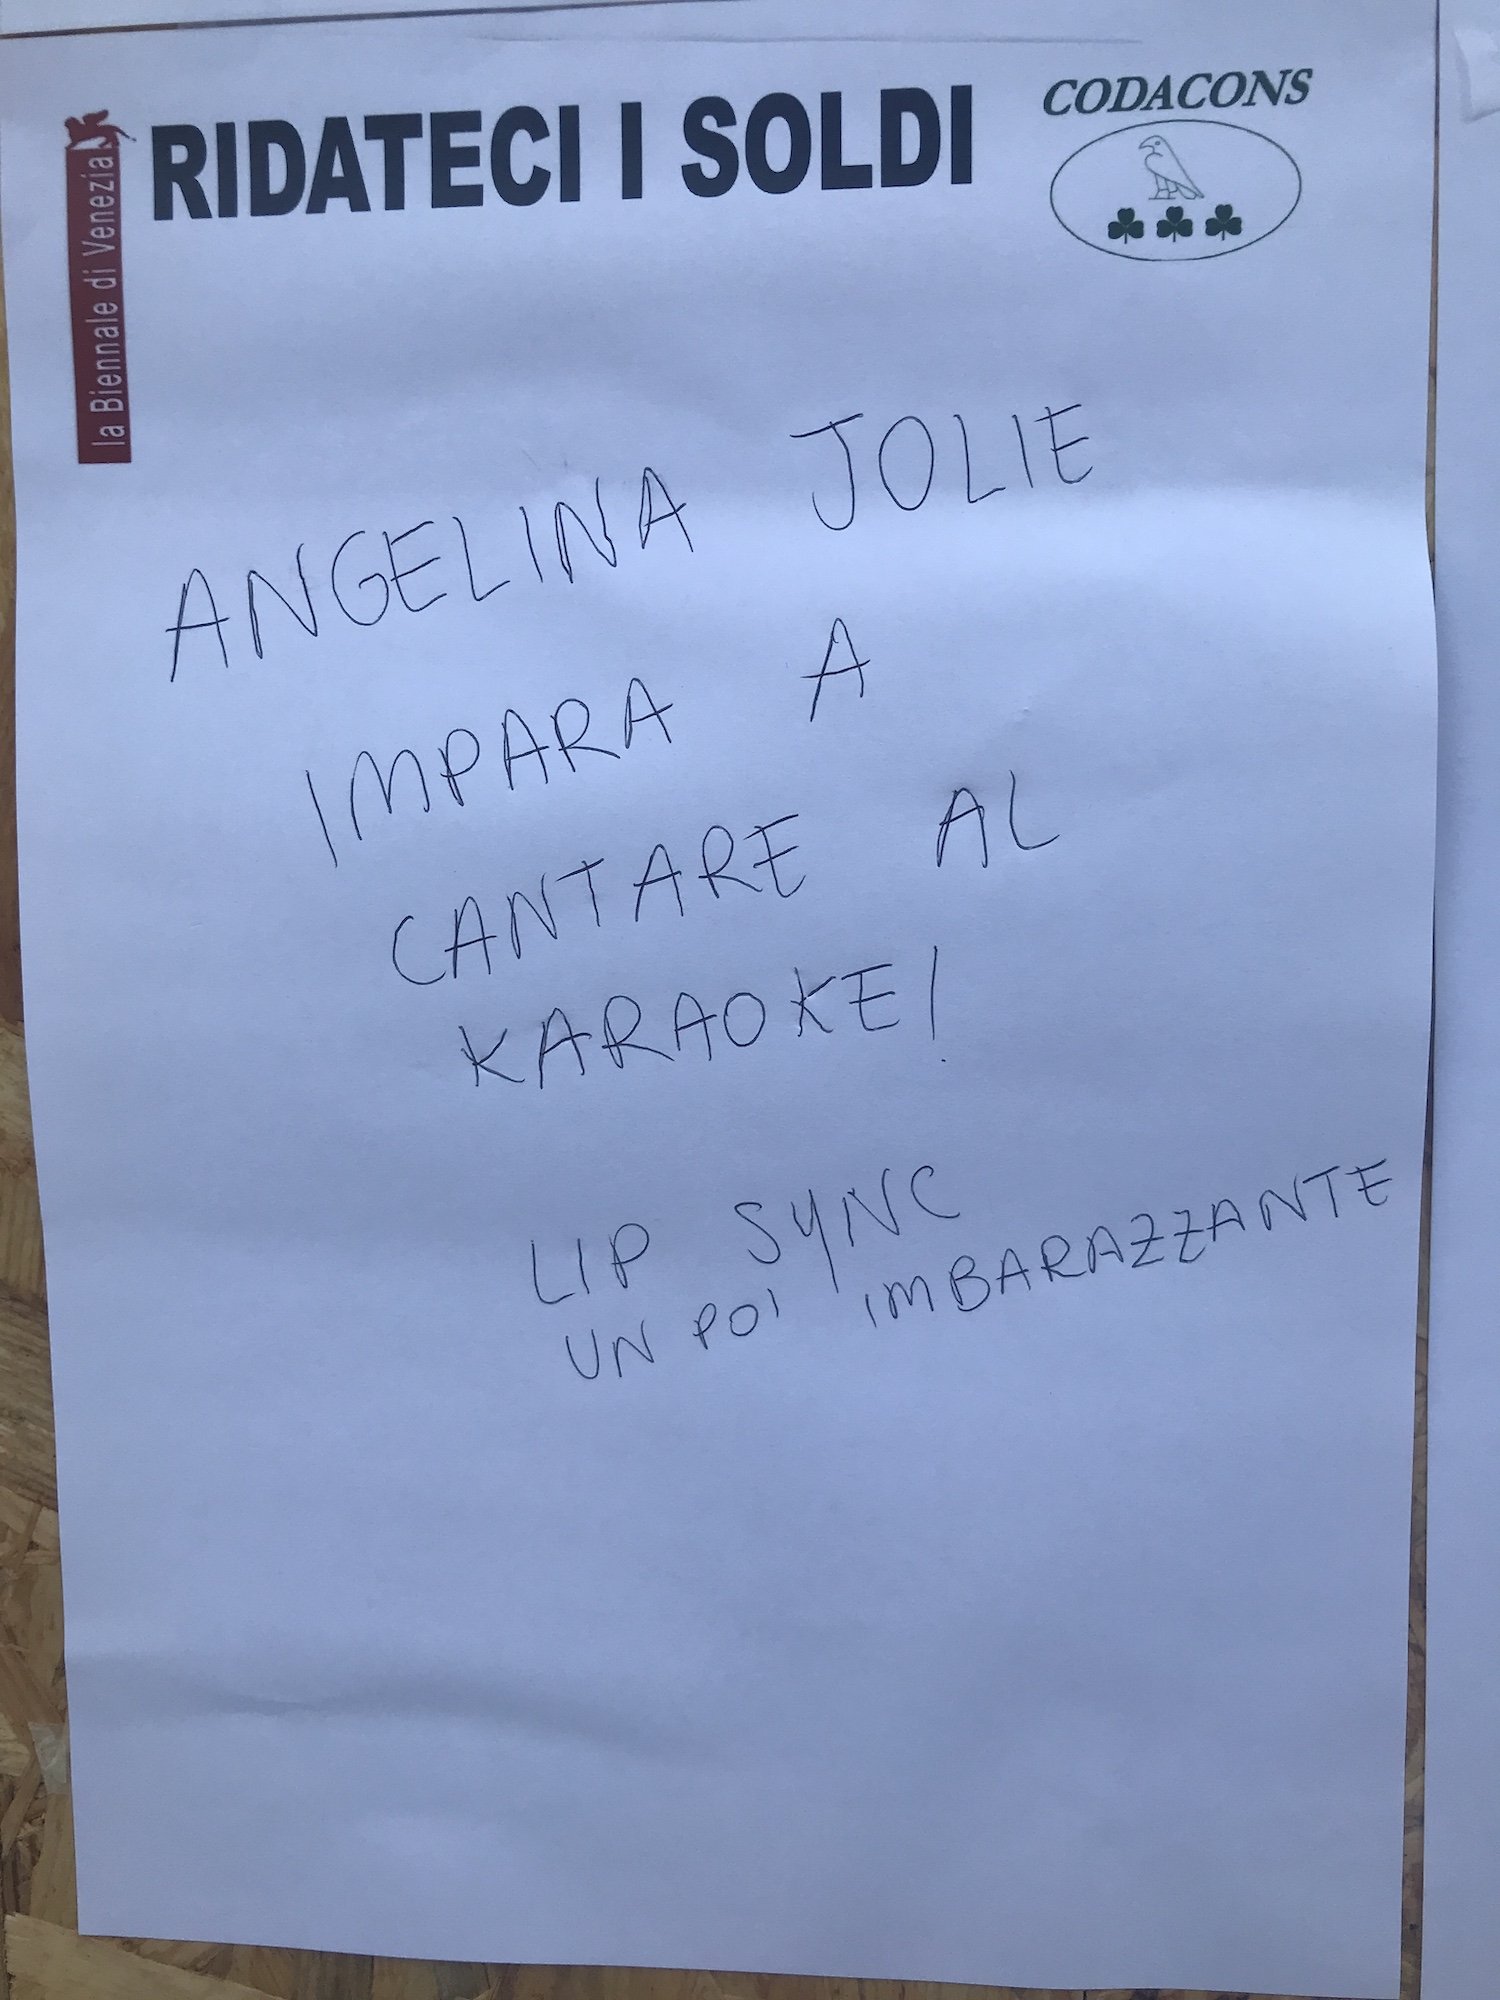 la Biennale di Venezia
RIDATECI I SOLDI
CODACONS
ANGELINA JOLIE
IMPARA A
CANTARE AL
KARAOKE!
LIP SYNC
UN POI IMBARAZZANTE